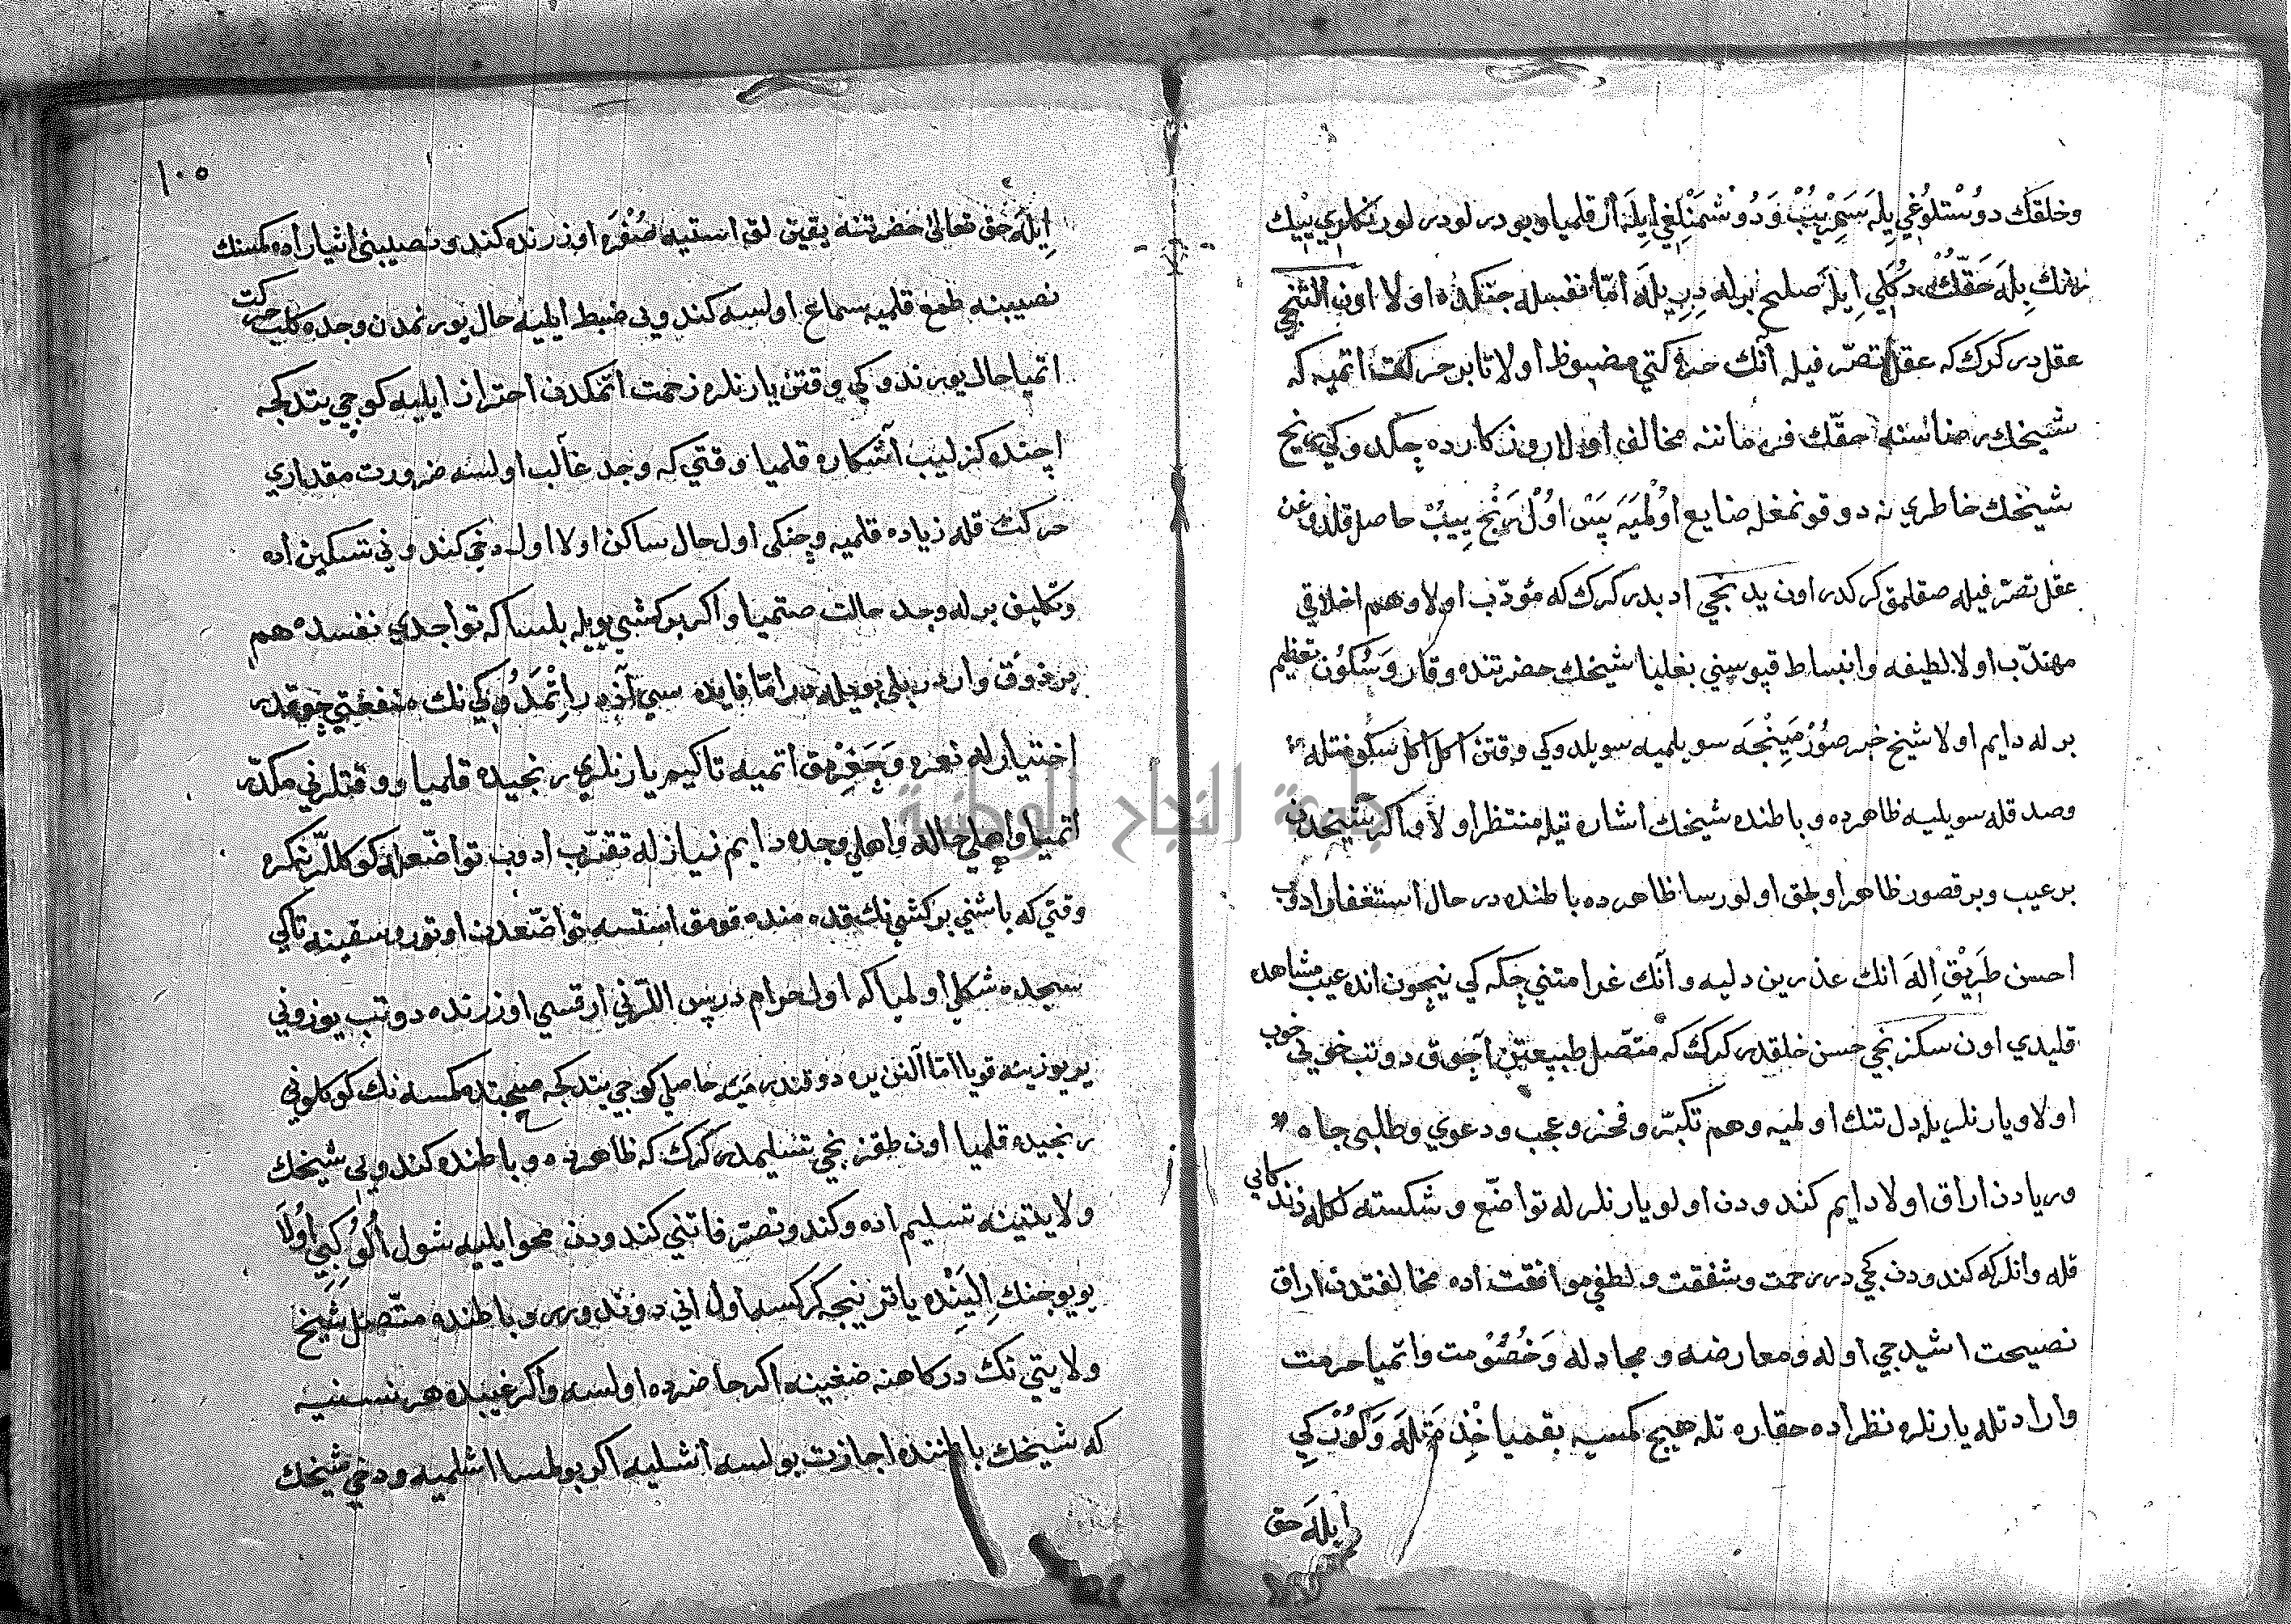 وخلقك دوستلوغي يله سمريب ودوشمنلغي ايله ارقلميا وبودر لودر لورنكلري بيك
رنك بله حقك دكلي ايله صلح برله دريله اما نفسله جنكده اولا اون التنجي
عقلدر كرك كه عقل تصرفيله آنك حركتي مضبوط اولا تا بر حركت اتميه كه
شيخك رضاسنه حقك فرماننه مخالف اولا روزكارده چكدوكي رنج
شيخك خاطري نه دوقونمغله ضايع اولميه پس اول رنج ييب حاصل قلدوغن
عقل تصرفيله صقلمق كركدر اون يدنجي ادبدر كرك كه مؤدب اولا وهم اخلاقي
مهذب اولا لطيفه وانبساط قپوسيني بغليا شيخك حضرتنده وقار وسكون تعظيم
برله دايم اولا شيخ خبر صورمينجه سويلميه سويلدوكي وقتن اكل اكل سكونتله
وصدقله سويليه ظاهرده وباطنده شيخك اشارتيله منتظر اولا واكر شيخدن
برعيب وبر قصور ظاهر اولجق اولورسا ظاهرده باطنده درحال استغفار ادوب
احسن طريق اله انك عذرين دليه وانك غرامتني چكه كي نيچون انده عيب مشاهده
قليدي اون سكزنجي حسن خلقدر كرك كه متصل طبيعتن آچوق دوتب خوني خوب
اولا ويارنلريله دل تنك اولميه وهم تكبر وفخر وعجب ودعوي وطلبي جاه
وريادن اراق اولا دايم كندودن اولو يارنلرله تواضع وشكسته لكله زندكاني
قله وانلركه كندودن كچيدر رحمت وشفقت ولطفي موافقت اده مخالفتدن اراق
نصيحت اشيدجي اوله ومعارضه ومجادله وخصومت واتميا حرمت
وارادتله يارنلره نظر اده حقارتله هيچ كمسيه بقميا خذمتله وكوب كي
ايله حق
١٠٥
ايله حق تعالى حضرتنه يقين لق استيه صفره اوزرنده كندو نصيبني اثيار اده كمسنك
نصيبنه طمع قلميه سماع اولسه كندوني ضبط ايليه حال يورنمدن وجده كلب حركت
اتميا حال يورندوكي وقتن يارنلره زحمت اتمكدن احتراز ايليه كوجي يتدكجه
اچنده كزليب آشكاره قلميا وقتي كه وجد غالب اولسه ضرورت مقداري
حركت قله زياده قلميه وچنكي اول حال ساكن اولا اول دخي كندوني تسكين اده
وتكليف برله وجد حالت صتميا واكر بركشي بويله بلسا كه تواجدي نفسده هم
برذوق واردر بلي بويله در اما فايده سي آزدر اتمدوكي نك منفعتي چوقدر
اختيارله نعره وچغرمق اتميه تا كيم يارنلري رنجيده قلميا ووقتلرني مكدر
اتميا واهلي حالله واهلي وجده دايم نيازله تقرب ادوب تواضعله كوكللر
وقتي كه باشني بركشي نك قدمنده قومق استسه تواضعدن اوتورو سقينه تا كي
سجده شكلي اولميا كه اول حرامدر پس اللرني ارقسي اوزرنده دوتب يوزوني
يريوزينه قويا اما آلنن يره دوقندرميه حاصلي كوجي يتدكجه صحبتده كمسه نك كوكلوني
رنجيده قلميا اون طقزنجي تسليمدر كرك كه ظاهرده وباطنده كندويي شيخك
ولايتينه تسليم اده وكندو تصرفاتني كندودن محو ايليه شول الو كبي اولا
يويوجنك الينده ياتر نيجه كركسه اول اني دوندورر وباطنده متصل شيخ
ولايتي نك دركاهنه صغينه اكر حاضرده اولسه واكر غيبده هر نسنيه
كه شيخك باطننده اجازت بولسه انشليه اكر بولمسا اشلميه ودخي شيخك